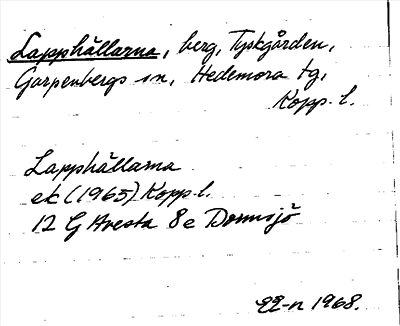 Lapphällarna, berg, Tyskgården,
Garpenbergs sn, Hedemora tg,
Kopp. l.
Lapphällarna
ek (1965) Kopp l.
12 G Avesta 8 e Dormsjö
1968.